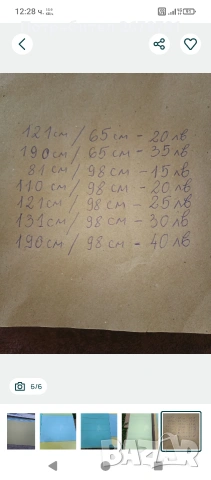 12:28 ч.
121см / 65 см - 20 лв
190см / 65 см - 35 лв
81 см / 98 см - 15 лв
110 см / 98 см - 20 лв
121 см / 98 см - 25 лв
131 см / 98 см - 30 лв
190 см / 98 см - 40 лв
6/6
BAZAR